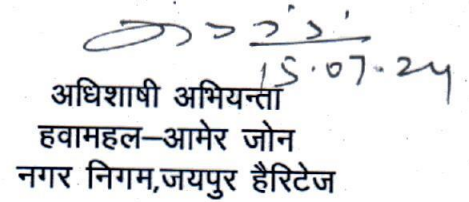 15.07.24
अधिशाषी अभियन्ता
हवामहल–आमेर जोन
नगर निगम,जयपुर हैरिटेज